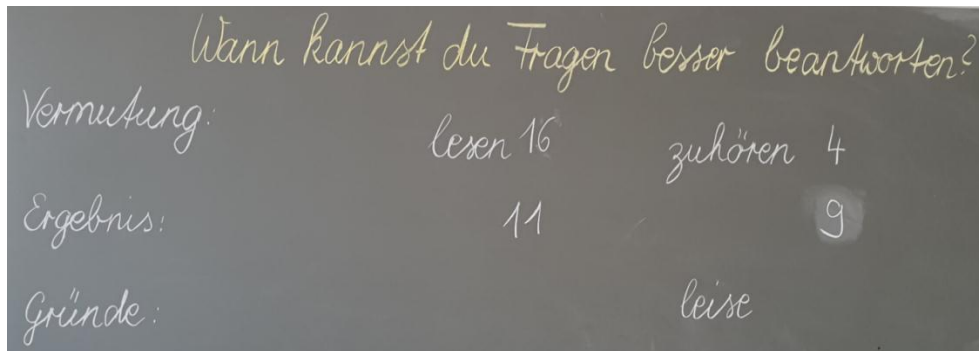 Wann kannst du Fragen besser beantworten?
Vermutung: lesen 16 zuhören 4
Ergebnis: 11 9
Gründe: leise